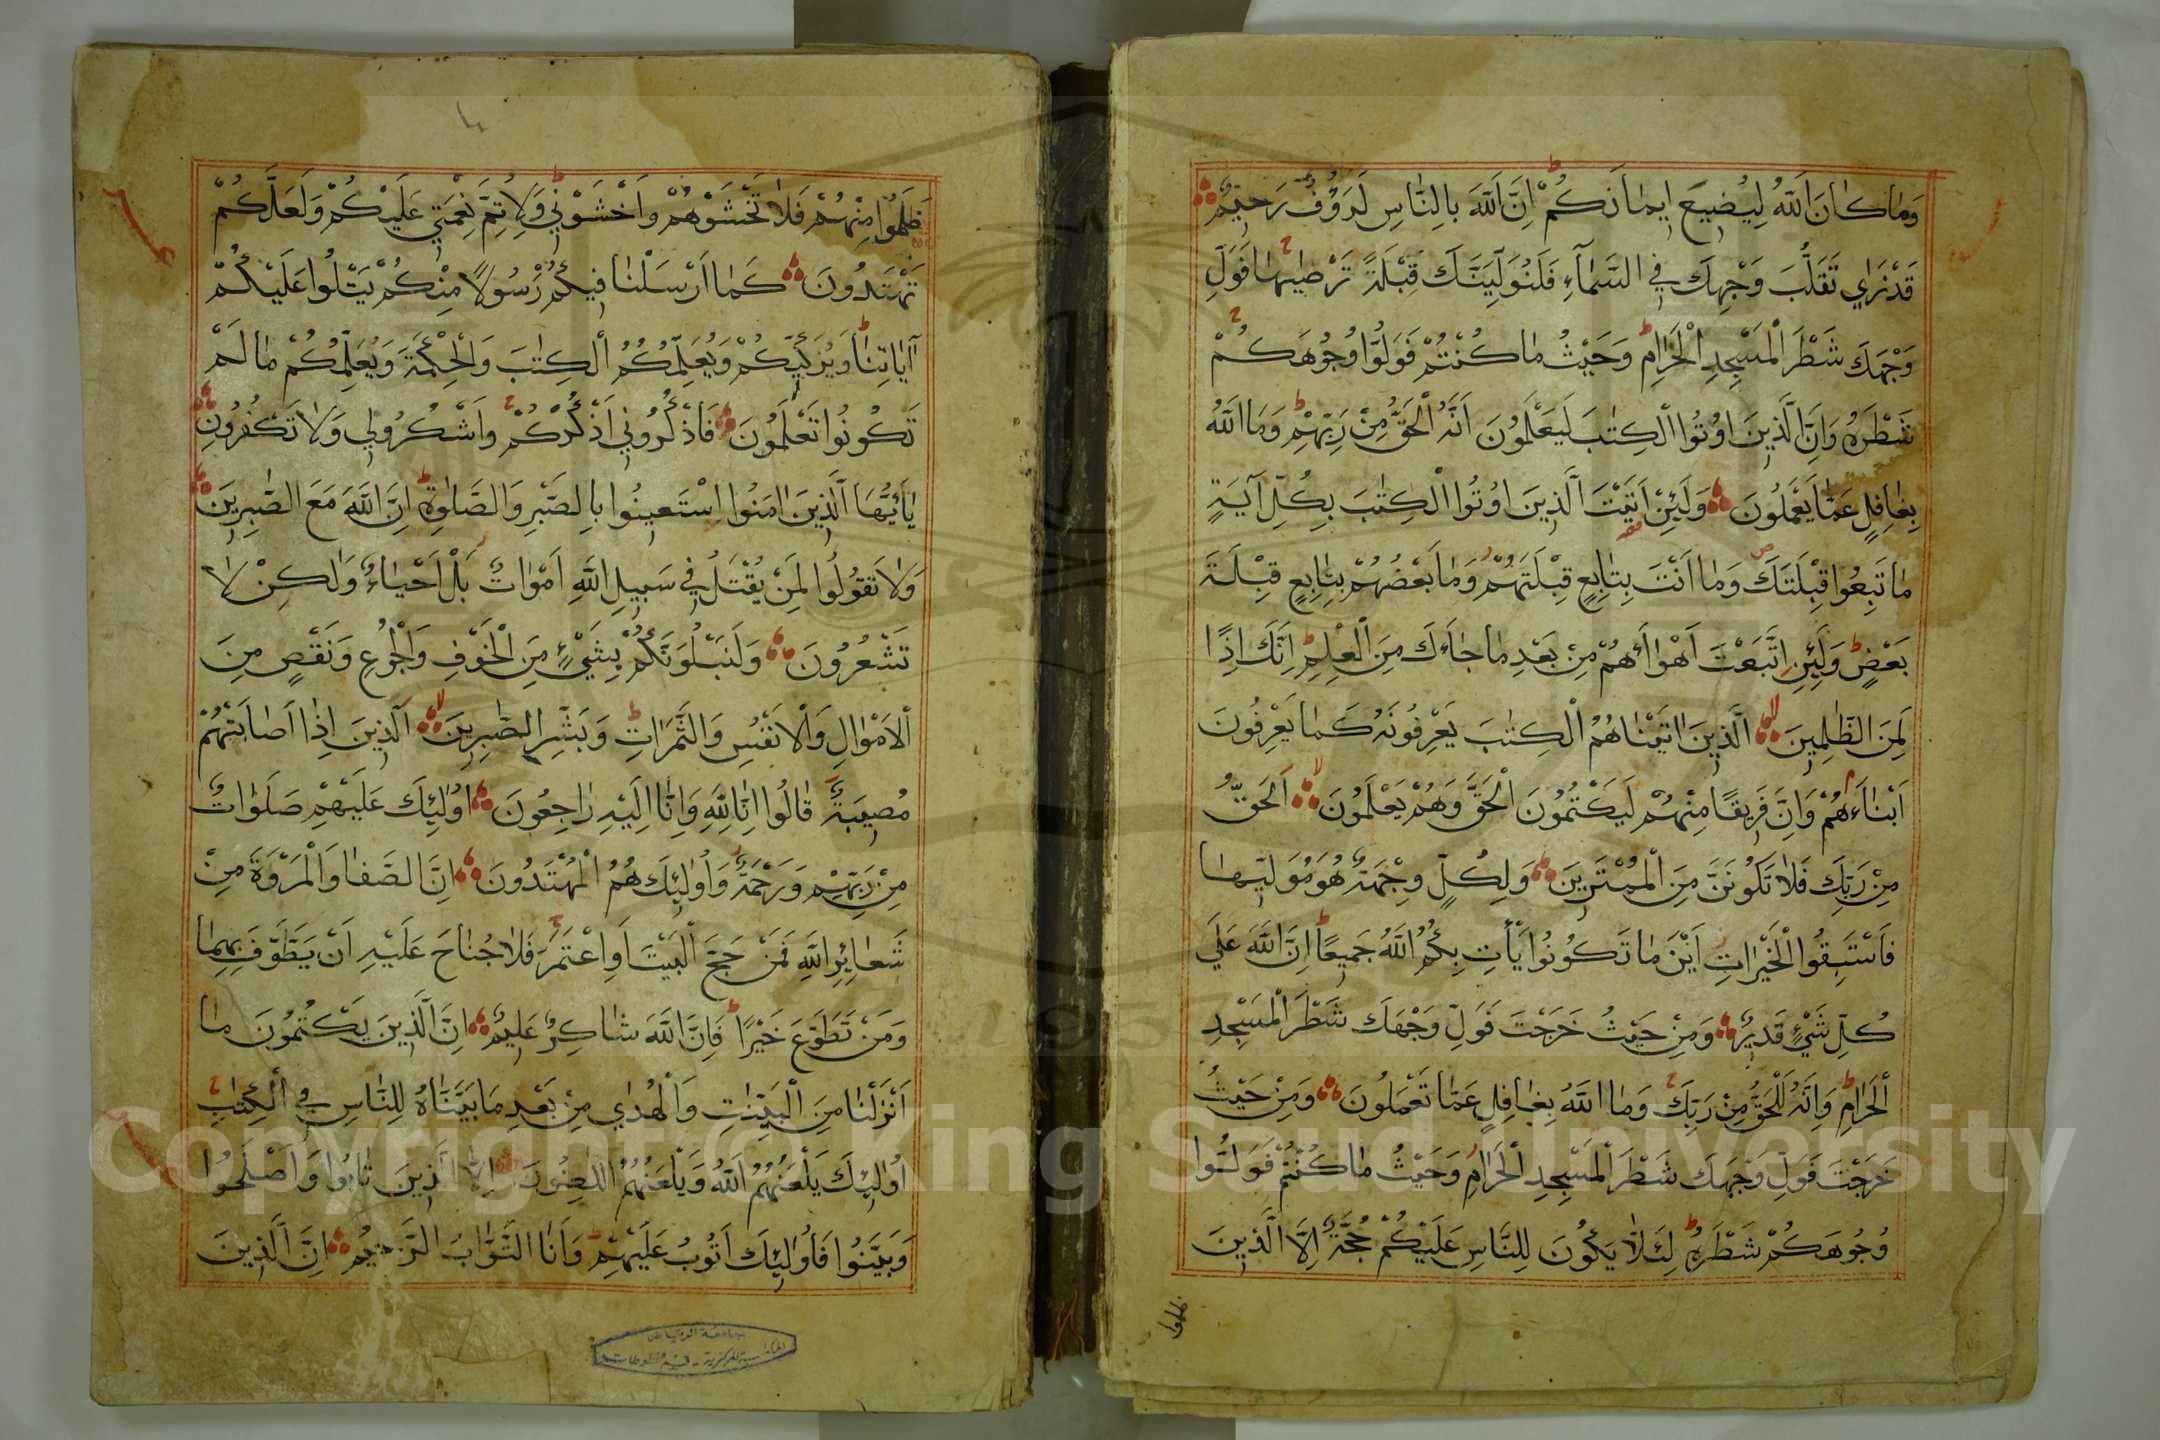 وَمَا كَانَ اللَّهُ لِيُضِيعَ اِيمَانَكُمْ اِنَّ اللَّهَ بِالنَّاسِ لَرَؤُفٌ رَحِيمٌ
قَدْ نَرٰي تَقَلُّبَ وَجْهِكَ فِي السَّمَآءِ فَلَنُوَلِّيَنَّكَ قِبْلَةً تَرْضٰيهَا فَوَلِّ
وَجْهَكَ شَطْرَ الْمَسْجِدِ الْحَرَامِ وَحَيْثُ مَا كُنْتُمْ فَوَلُّوا وُجُوهَكُمْ
شَطْرَهُ وَاِنَّ الَّذِينَ اوُتُوا الْكِتٰبَ لَيَعْلَمُونَ اَنَّهُ الْحَقُّ مِنْ رَبِّهِمْ وَمَا اللَّهُ
بِغَافِلٍ عَمَّا يَعْمَلُونَ وَلَئِنْ اَتَيْتَ الَّذِينَ اوُتُوا الْكِتٰبَ بِكُلِّ آيَةٍ
مَا تَبِعُوا قِبْلَتَكَ وَمَا اَنْتَ بِتَابِعٍ قِبْلَتَهُمْ وَمَا بَعْضُهُمْ بِتَابِعٍ قِبْلَةَ
بَعْضٍ وَلَئِنِ اتَّبَعْتَ اَهْوَاءَهُمْ مِنْ بَعْدِ مَا جَاءَكَ مِنَ الْعِلْمِ اِنَّكَ اِذًا
لَمِنَ الظَّلِمِينَ الَّذِينَ اتَيْنَاهُمُ الْكِتٰبَ يَعْرِفُونَهُ كَمَا يَعْرِفُونَ
اَبْنَاءَهُمْ وَاِنَّ فَرِيقًا مِنْهُمْ لَيَكْتُمُونَ الْحَقَّ وَهُمْ يَعْلَمُونَ اَلْحَقُّ
مِنْ رَبِّكَ فَلَا تَكُونَنَّ مِنَ الْمُمْتَرِينَ وَلِكُلٍّ وِجْهَةٌ هُوَ مُوَلِّيهَا
فَاسْتَبِقُوا الْخَيْرَاتِ اَيْنَ مَا تَكُونُوا يَأْتِ بِكُمُ اللَّهُ جَمِيعًا اِنَّ اللَّهَ عَلَي
كُلِّ شَيْءٍ قَدِيرٌ وَمِنْ حَيْثُ خَرَجْتَ فَوَلِّ وَجْهَكَ شَطْرَ الْمَسْجِدِ
الْحَرَامِ وَاِنَّهُ لَلْحَقُّ مِنْ رَبِّكَ وَمَا اللَّهُ بِغَافِلٍ عَمَّا تَعْمَلُونَ وَمِنْ حَيْثُ
خَرَجْتَ فَوَلِّ وَجْهَكَ شَطْرَ الْمَسْجِدِ الْحَرَامِ وَحَيْثُ مَا كُنْتُمْ فَوَلُّوا
وُجُوهَكُمْ شَطْرَهُ لِئَلَّا يَكُونَ لِلنَّاسِ عَلَيْكُمْ حُجَّةٌ اِلَّا الَّذِينَ
ظلموا
ظَلَمُوا مِنْهُمْ فَلَا تَخْشَوْهُمْ وَاخْشَوْنِي وَلِاُتِمَّ نِعْمَتِي عَلَيْكُمْ وَلَعَلَّكُمْ
تَهْتَدُونَ كَمَا اَرْسَلْنَا فِيكُمْ رَسُولًا مِنْكُمْ يَتْلُوا عَلَيْكُمْ
آيَاتِنَا وَيُزَكِّيكُمْ وَيُعَلِّمُكُمُ الْكِتٰبَ وَالْحِكْمَةَ وَيُعَلِّمُكُمْ مَا لَمْ
تَكُونُوا تَعْلَمُونَ فَاذْكُرُونِي اَذْكُرْكُمْ وَاشْكُرُولِي وَلَا تَكْفُرُونِ
يَاَيُّهَا الَّذِينَ اٰمَنُوا اسْتَعِينُوا بِالصَّبْرِ وَالصَّلٰوةِ اِنَّ اللَّهَ مَعَ الصّٰبِرِينَ
وَلَا تَقُولُوا لِمَنْ يُقْتَلُ فِي سَبِيلِ اللَّهِ اَمْوَاتٌ بَلْ اَحْيَاءٌ وَلٰكِنْ لَا
تَشْعُرُونَ وَلَنَبْلُوَنَّكُمْ بِشَيْءٍ مِنَ الْخَوْفِ وَالْجُوعِ وَنَقْصٍ مِنَ
الْاَمْوَالِ وَالْاَنْفُسِ وَالثَّمَرَاتِ وَبَشِّرِ الصّٰبِرِينَ الَّذِينَ اِذَا اَصَابَتْهُمْ
مُصِيبَةٌ قَالُوا اِنَّا لِلَّهِ وَاِنَّا اِلَيْهِ رَاجِعُونَ اوُلٰئِكَ عَلَيْهِمْ صَلَوَاتٌ
مِنْ رَبِّهِمْ وَرَحْمَةٌ وَاُولٰئِكَ هُمُ الْمُهْتَدُونَ اِنَّ الصَّفَا وَالْمَرْوَةَ مِنْ
شَعَائِرِ اللَّهِ فَمَنْ حَجَّ الْبَيْتَ اَوِ اعْتَمَرَ فَلَا جُنَاحَ عَلَيْهِ اَنْ يَطَّوَّفَ بِهِمَا
وَمَنْ تَطَوَّعَ خَيْرًا فَاِنَّ اللَّهَ شَاكِرٌ عَلِيمٌ اِنَّ الَّذِينَ يَكْتُمُونَ مَا
اَنْزَلْنَا مِنَ الْبَيِّنٰتِ وَالْهُدٰي مِنْ بَعْدِ مَا بَيَّنَّاهُ لِلنَّاسِ فِي الْكِتٰبِ
اوُلٰئِكَ يَلْعَنُهُمُ اللَّهُ وَيَلْعَنُهُمُ اللّٰعِنُونَ اِلَّا الَّذِينَ تَابُوا وَاَصْلَحُوا
وَبَيَّنُوا فَاُولٰئِكَ اَتُوبُ عَلَيْهِمْ وَاَنَا التَّوَّابُ الرَّحِيمُ اِنَّ الَّذِينَ
جامعة الرياض
المكتبة المركزية - قسم المخطوطات
Copyright © King Saud University
1957